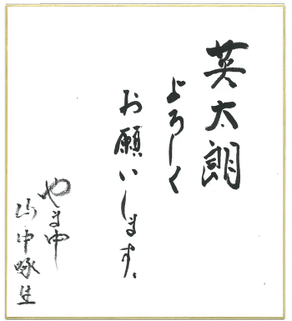 英太朗
よろしく
お願いします。
やま中
山中啄生